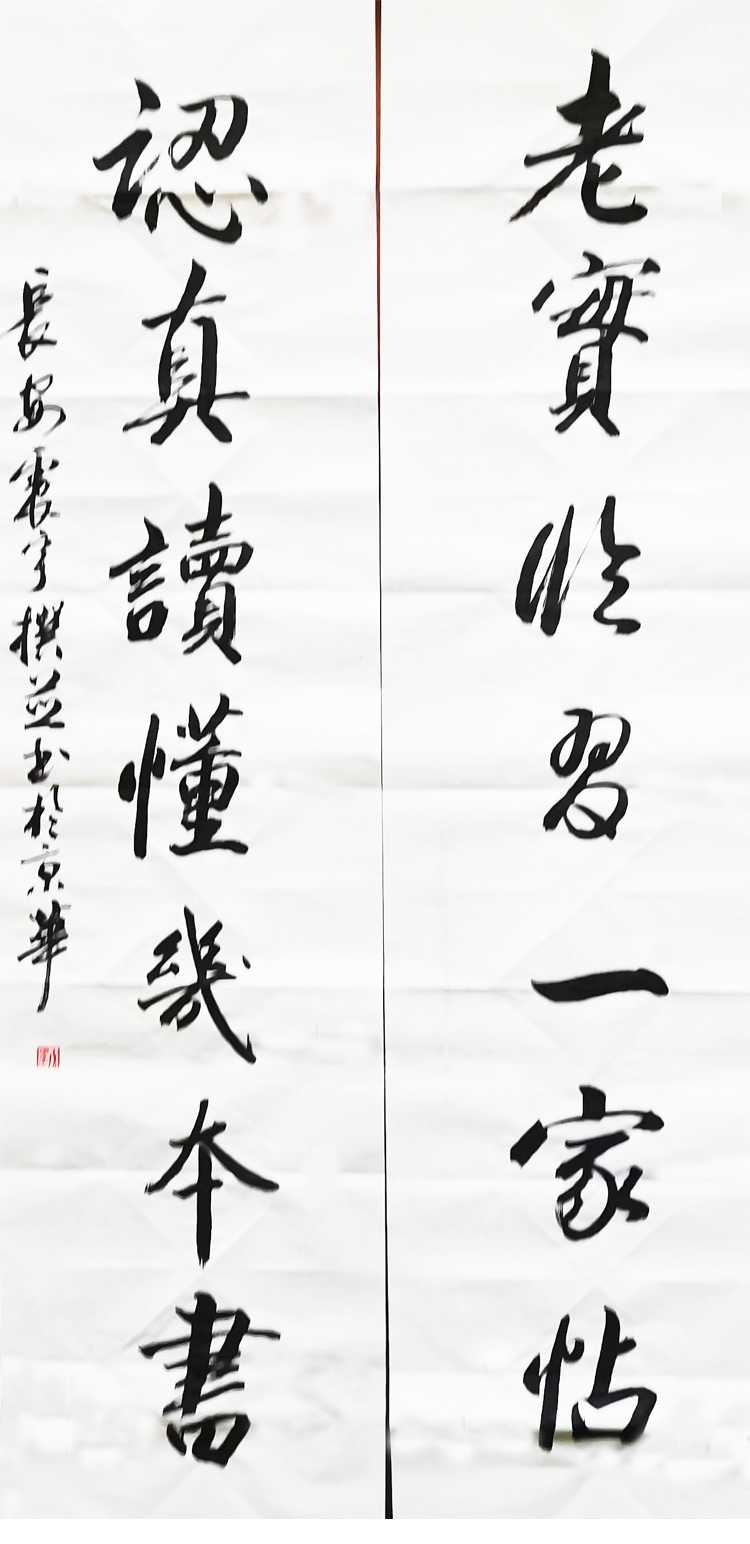 老實临習一家帖
認真讀懂幾本書
長安震宇撰並书於京華